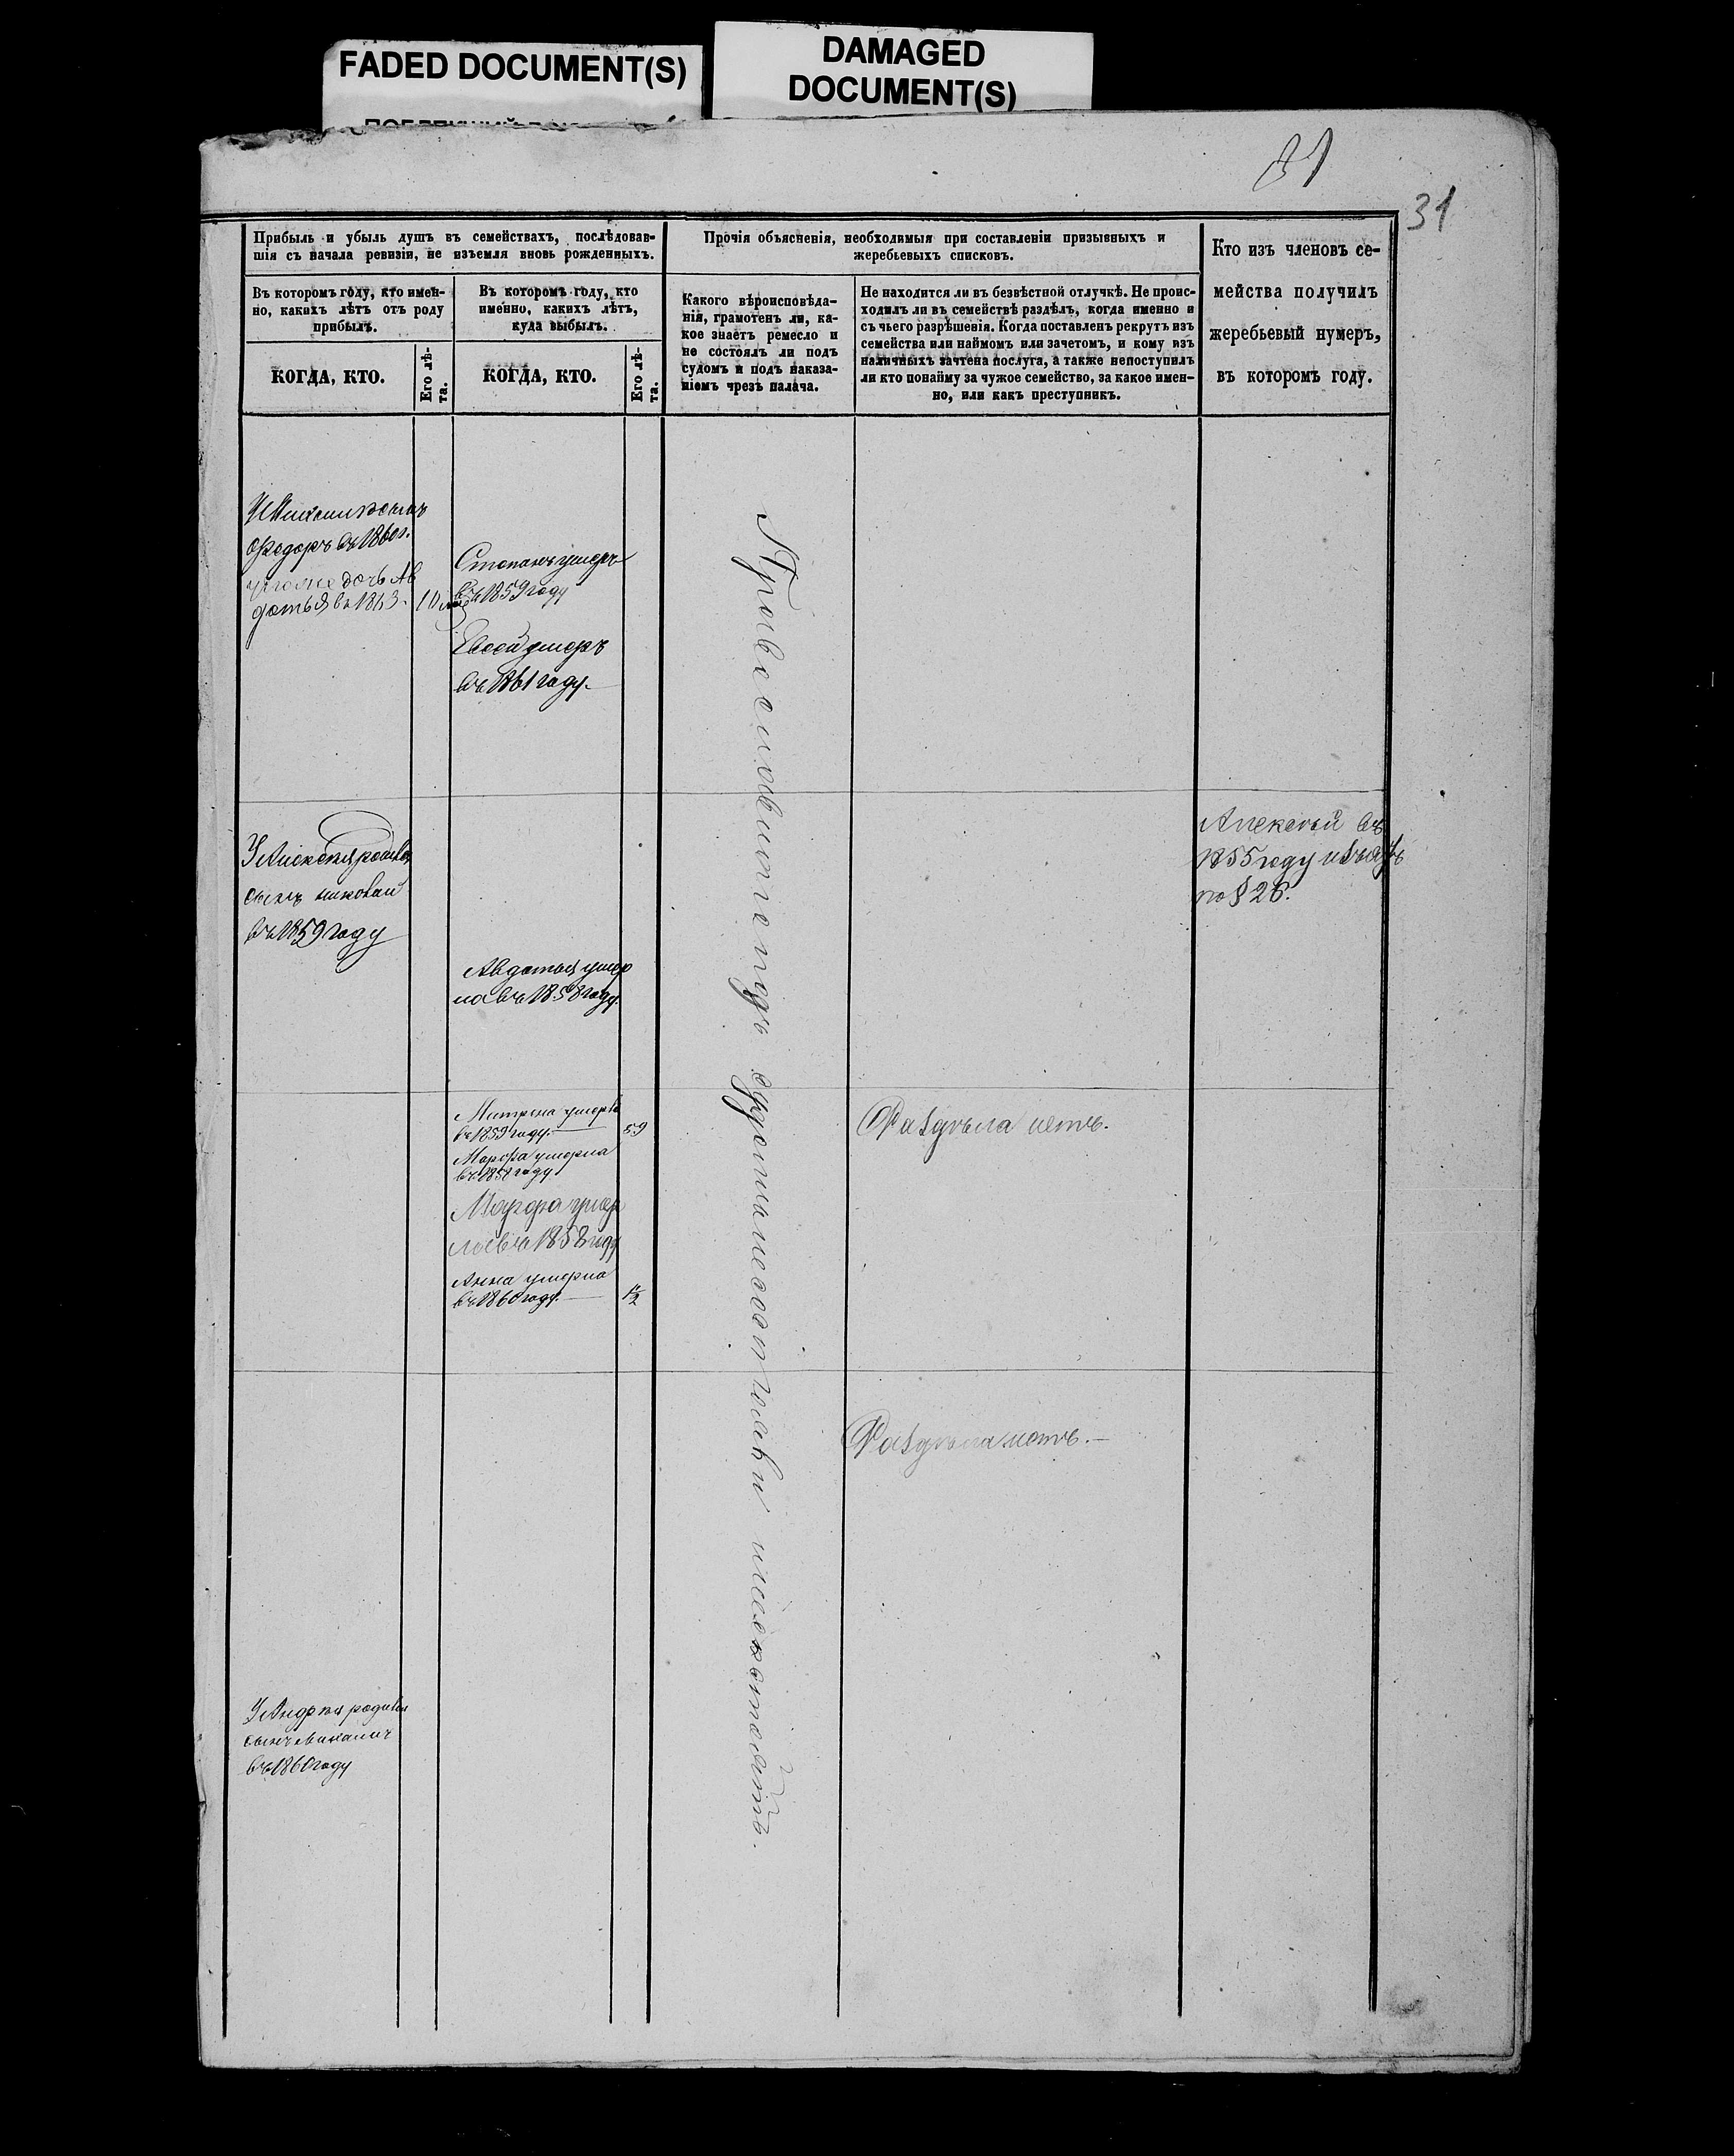 FADED DOCUMENT(S)
DAMAGED
DOCUMENT(S)
31
31
Прибыль и убыль душъ въ семействахъ, послѣдовав-
шія съ начала ревизіи, не изъемля вновь рожденныхъ.
Въ которомъ году, кто имен-
но, какихъ лѣтъ отъ роду
прибылъ.
КОГДА, КТО.
Его лѣ-
та.
Въ которомъ году, кто
именно, какихъ лѣтъ,
куда выбылъ.
КОГДА, КТО.
Его лѣ-
та.
Прочія объясненія, необходимыя при составленіи призывныхъ и
жеребьевыхъ списковъ.
Какого вѣроисповѣда-
нія, грамотенъ ли, ка-
кое знаетъ ремесло и
не состоялъ ли подъ
судомъ и подъ наказа-
ніемъ чрезъ палача.
Не находится ли въ безвѣстной отлучкѣ. Не проис-
ходилъ ли въ семействѣ раздѣлъ, когда именно и
съ чьего разрѣшенія. Когда поставленъ рекрутъ изъ
семейства или наймомъ или зачетомъ, и кому изъ
наличныхъ зачтена послуга, а также непоступилъ
ли кто понайму за чужое семейство, за какое имен-
но, или какъ преступникъ.
Кто изъ членовъ се-
мейства получилъ
жеребьевый нумеръ,
въ которомъ году.
Федоръ въ 1860 г.
дочь Ав
дотья въ 1863.
10
Степанъ умеръ
въ 1859 году
Евсей умеръ
въ 1861 году.
У Алексея родився
сынъ николай
въ 1859 году
Авдотья умер
ла въ 1858 году.
Алексей въ
1855 году
по § 26.
Матрена умерла
въ 1859 году.
59
Марфа умерла
въ 1858 году
Марфа умер
ла въ 1858 году
Анна умерла
въ 1860 году.
1/2
Раздѣла нетъ.
Раздѣла нетъ.
У Андрея родився
сынъ
въ 1860 году
Православные подъ судомъ не состояли и не состоятъ.